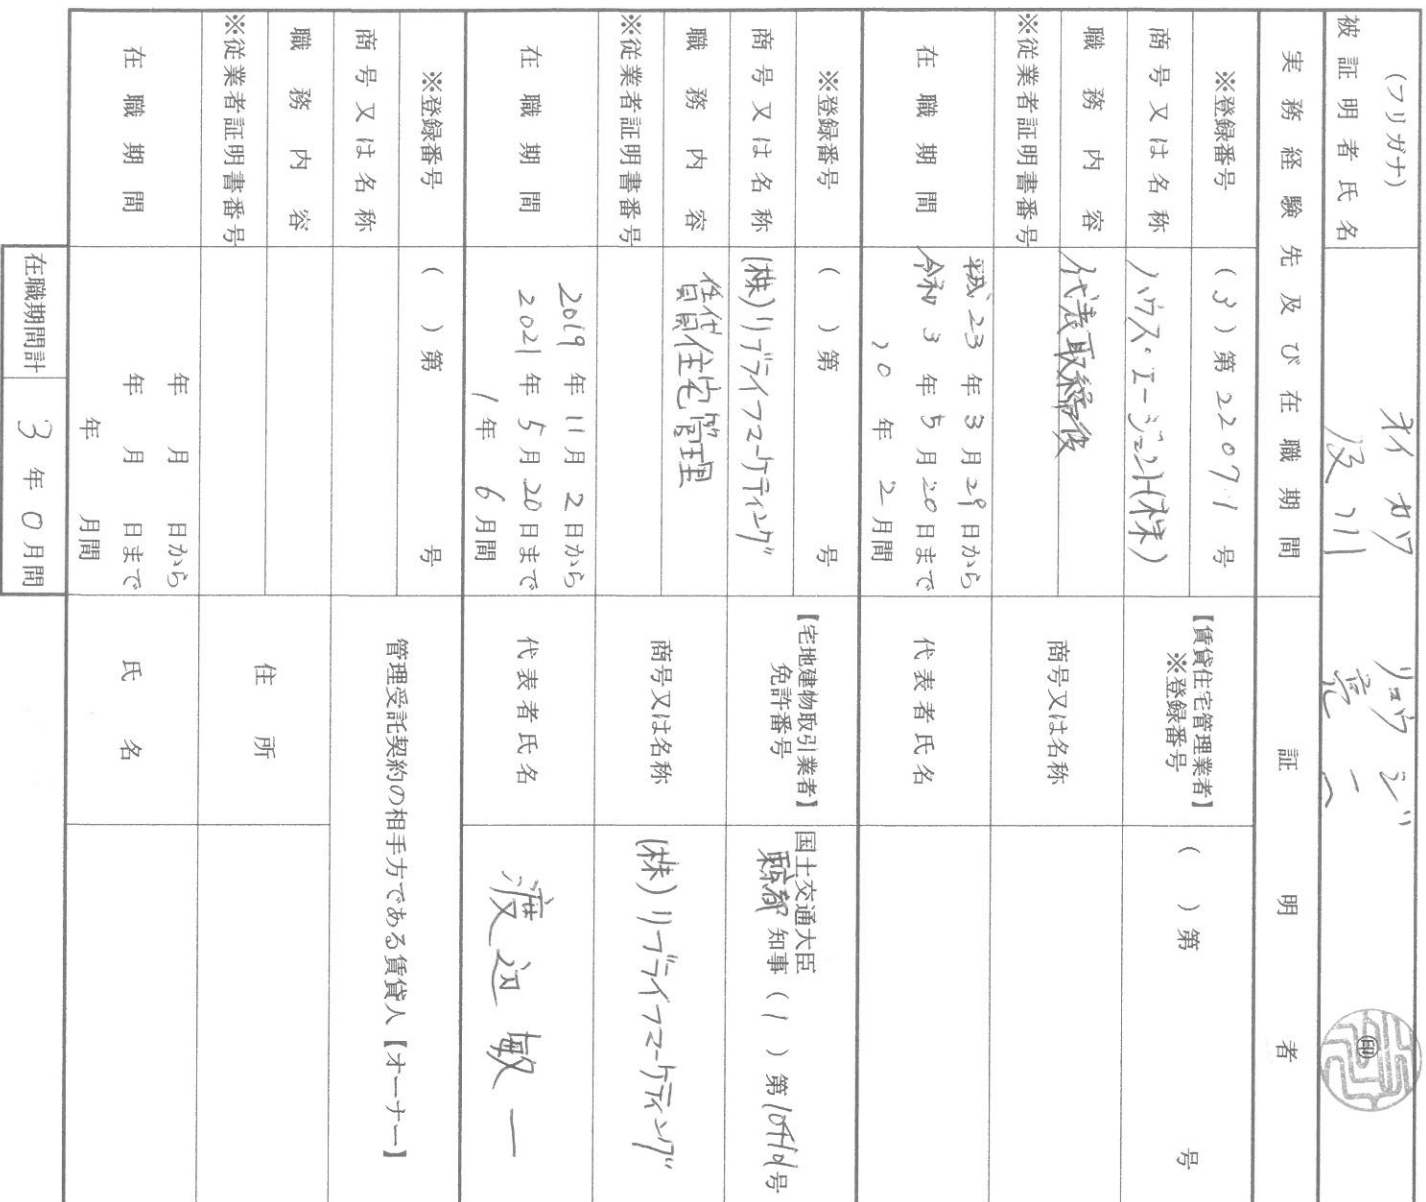 (フリガナ) オイカワ リョウジ
被証明者氏名 及川 亮二 ㊞
実務経験先及び在職期間
証明者
※登録番号 (3)第22071号
商号又は名称 ハウス・エージェント(株)
職務内容 代表取締役
※従業者証明書番号
在職期間
平成23年3月29日から
令和3年5月20日まで
10年2月間
【賃貸住宅管理業者】
※登録番号 ( )第 号
商号又は名称
代表者氏名
※登録番号 ( )第 号
商号又は名称 (株)リブライフマーケティング
職務内容 賃貸住宅管理
※従業者証明書番号
在職期間
2019年11月2日から
2021年5月20日まで
1年6月間
【宅地建物取引業者】
免許番号
国土交通大臣
東京都知事(1)第 号
商号又は名称 (株)リブライフマーケティング
代表者氏名 渡辺敏一
※登録番号 ( )第 号
商号又は名称
職務内容
※従業者証明書番号
在職期間
年 月 日から
年 月 日まで
年 月間
管理受託契約の相手方である賃貸人【オーナー】
住所
氏名
在職期間計 3年0月間